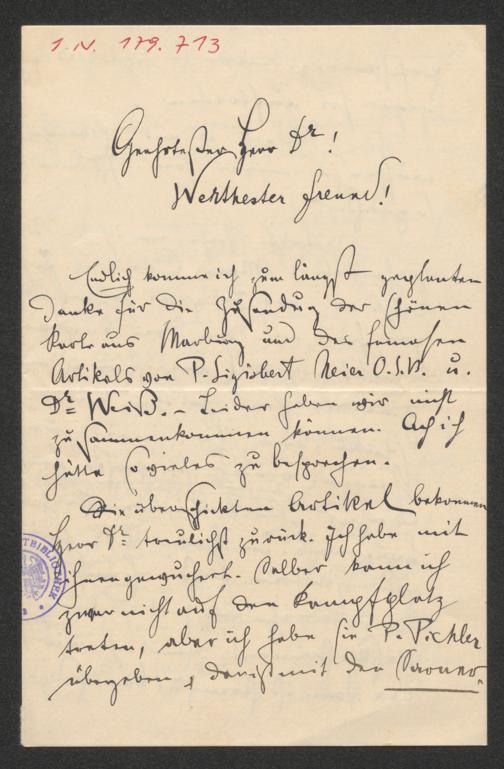 I.N. 179.713
Geehrtester Herr Dr!
Werthester Freund!
Endlich komme ich zum längst geplanten
Danke für die Zusendung der schönen
Karte aus Marburg und des famosen
Artikels von P. Sigisbert Meier O.S.B. u.
Dr Weiß. – Leider haben wir nicht
zusammenkommen können. Ach ich
hätte so vieles zu besprechen.
Die überschickten Artikel bekommen
Herr Dr treulichst zurück. Ich habe mit
ihnen gewuchert. Selber kann ich
zwar nicht auf den Kampfplatz
treten, aber ich habe sie P. Pichler
übergeben, der mit den
BIBLIOTHEK